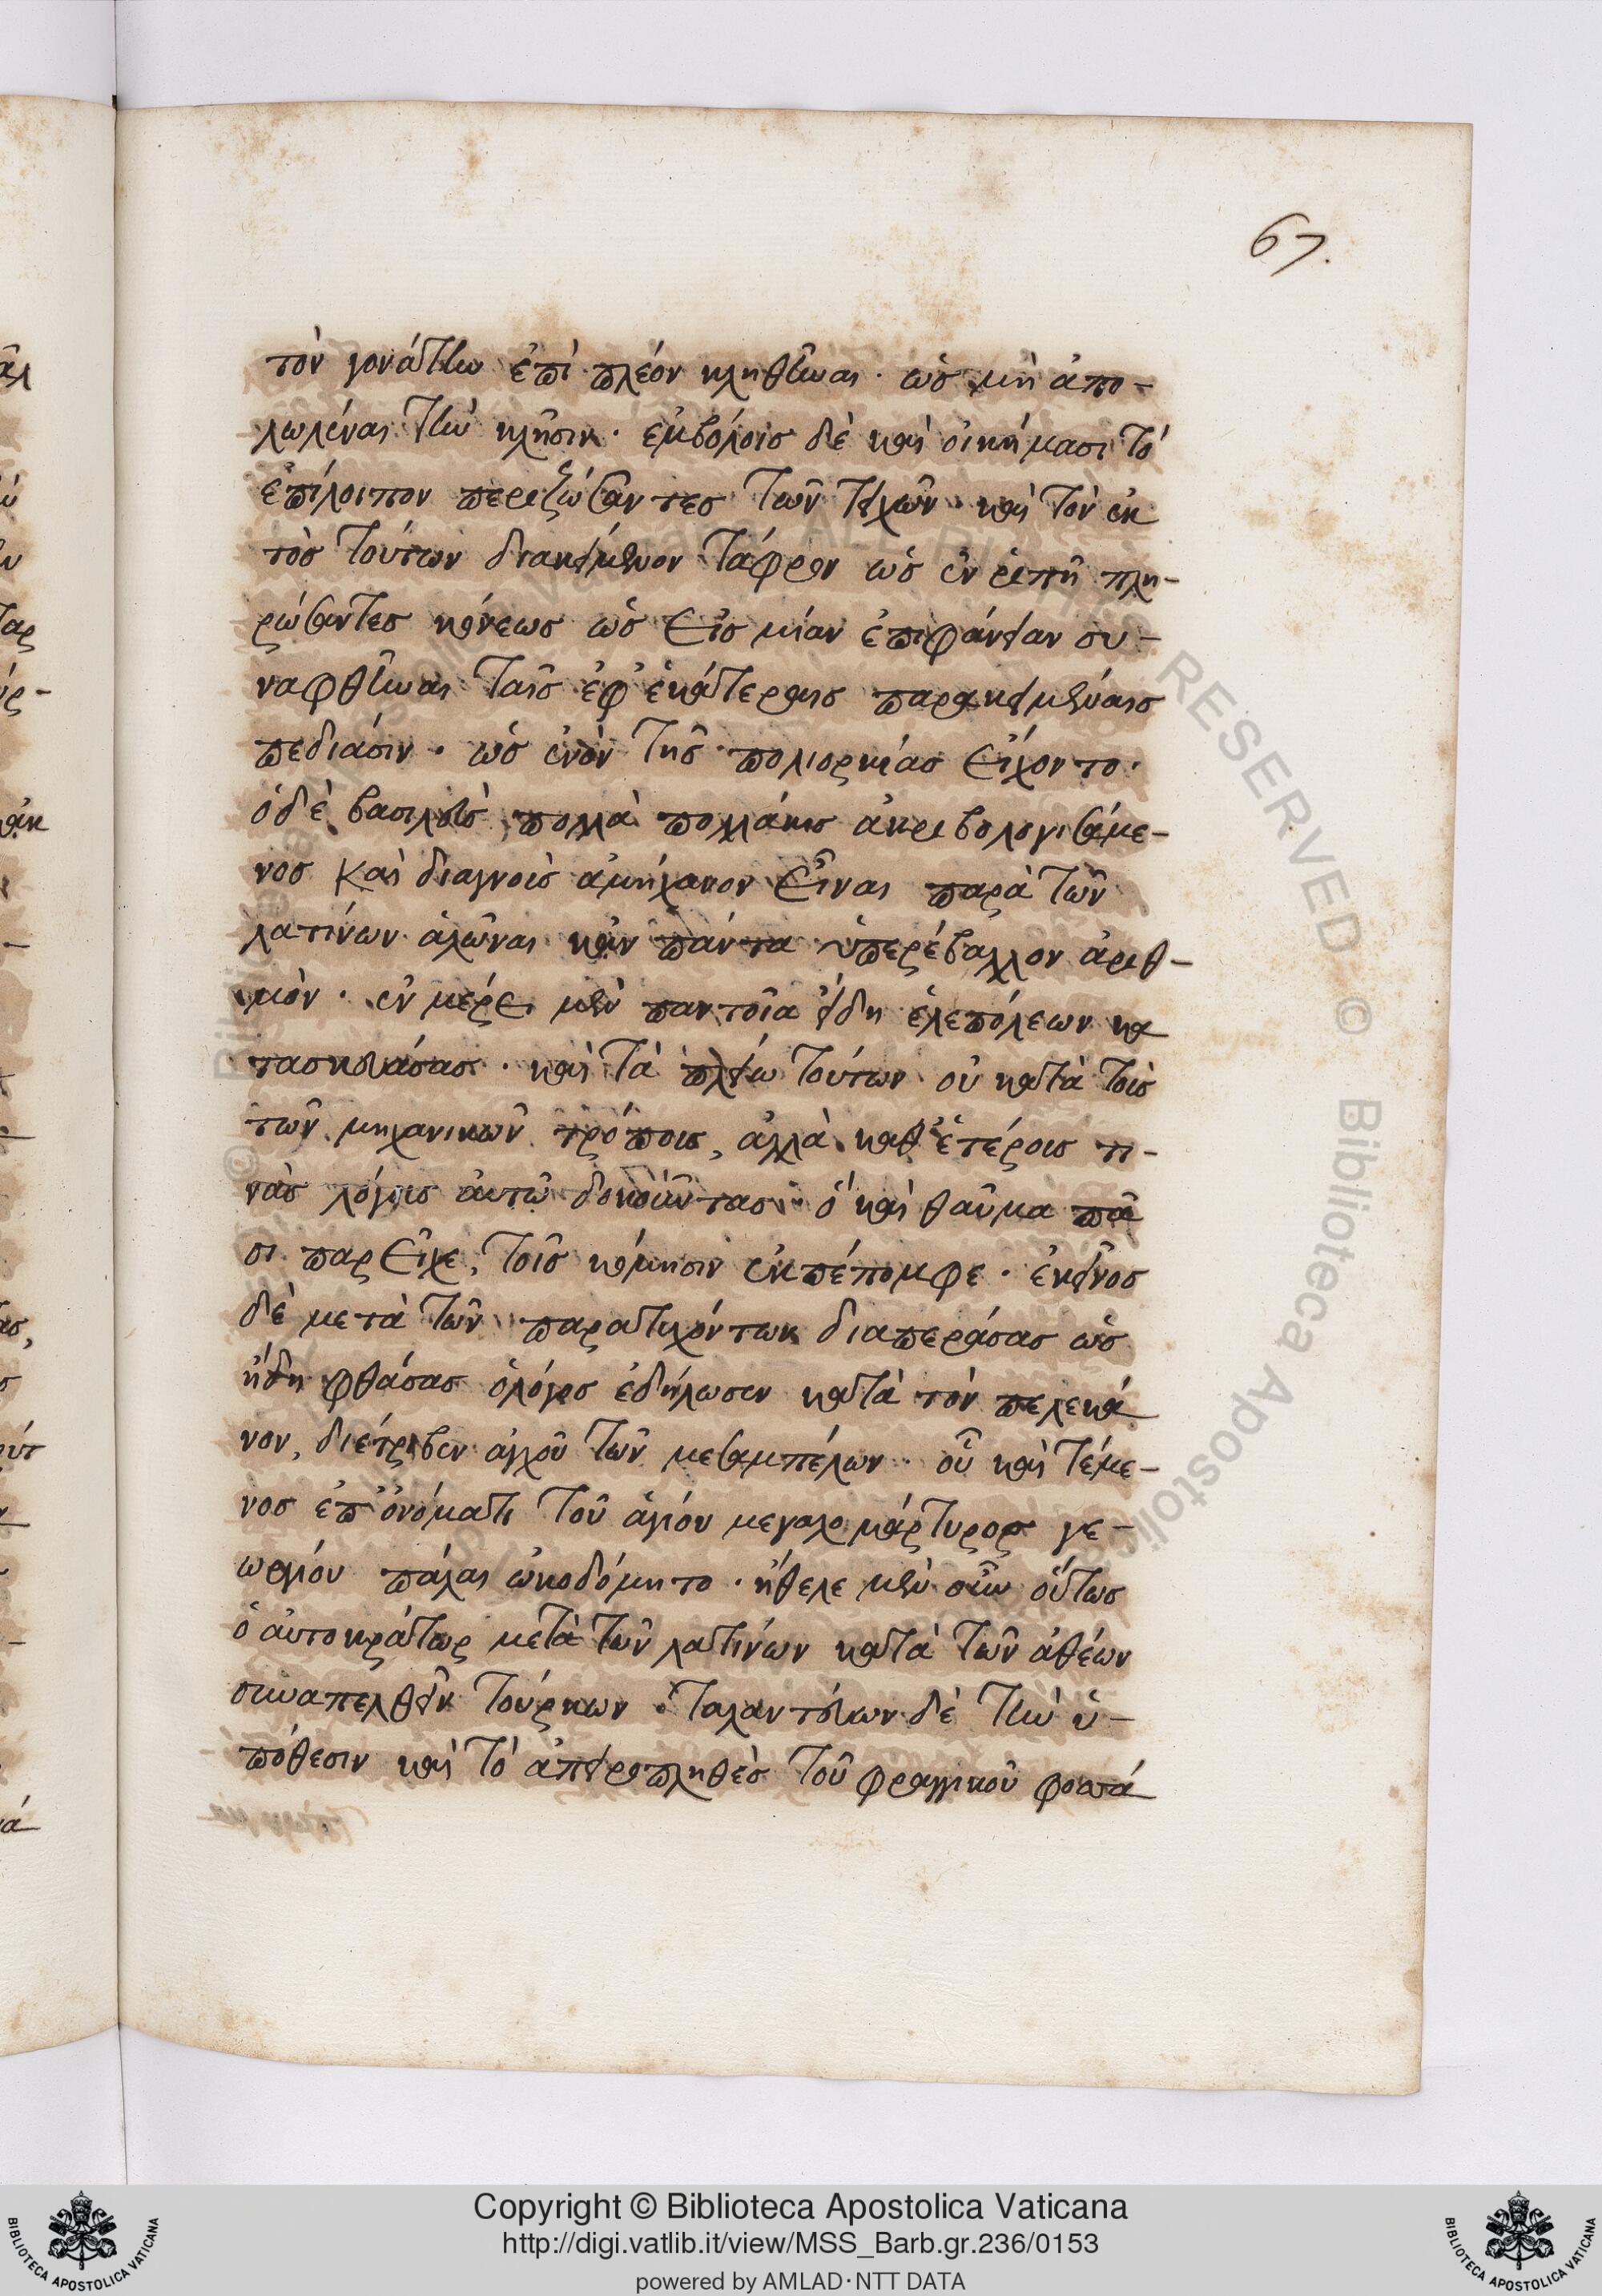 67.
τὸν γονάτην ἐπὶ πλέον κληθῆναι · ὡς μὴ ἀπο-
λωλέναι τὴν κλῆσιν · ἐμβόλοις δὲ καὶ οἰκήμασι τὸ
ἐπίλοιπον περιζώσαντες τῶν τειχῶν · καὶ τὸν ἐκ
τὸς τούτων διακείμενον τάφρον ὡς ἐν ῥιπῇ πλη-
ρώσαντες κόνεως ὡς εἰς μίαν ἐπιφάνειαν συ-
ναφθῆναι ταῖς ἐφ ἑκάτεραις παρακειμέναις
πεδιάσιν · ὡς ἐνὸν τῆς πολιορκίας εἴχοντο ·
ὁ δὲ βασιλεὺς πολλὰ πολλάκις ἀκριβολογισάμε-
νος καὶ διαγνοὺς ἀμήχανον εἶναι παρὰ τῶν
λατίνων ἁλῶναι κἂν πάντα ὑπερέβαλλον ἀριθ-
μὸν · ἐν μέρει μὲν παντοῖα εἴδη ἑλεπόλεων κα
τασκευάσας · καὶ τὰ πλείω τούτων οὐ κατὰ τοὺς
τῶν μηχανικῶν τρόπους, ἀλλὰ καθ ἑτέρους τι-
νὰς λόγους αὐτῷ δοκοῦντας ὃ καὶ θαῦμα πᾶ
σι παρεῖχε, τοῖς κόμησιν ἐκπέπομφε · ἐκεῖνος
δὲ μετὰ τῶν παρατυχόντων διαπεράσας ὡς
ἤδη φθάσας ὁ λόγος ἐδήλωσεν κατὰ τὸν πελεκά
νον, διέτριβεν ἀγχοῦ τῶν μεσαμπέλων · οὗ καὶ τέμε-
νος ἐπ ὀνόματι τοῦ ἁγίου μεγαλομάρτυρος γε-
ωργίου πάλαι ὠκοδόμητο · ἤθελε μὲν οὖν οὕτως
ὁ αὐτοκράτωρ μετὰ τῶν λατίνων κατὰ τῶν ἀθέων
συναπελθεῖν τούρκων · ταλαντεύων δὲ τὴν ὑ-
πόθεσιν καὶ τὸ ἀπειροπληθὲς τοῦ φραγγικοῦ φοσσά
Copyright © Biblioteca Apostolica Vaticana
http://digi.vatlib.it/view/MSS_Barb.gr.236/0153
powered by AMLAD·NTT DATA
BIBLIOTECA APOSTOLICA VATICANA
BIBLIOTECA APOSTOLICA VATICANA